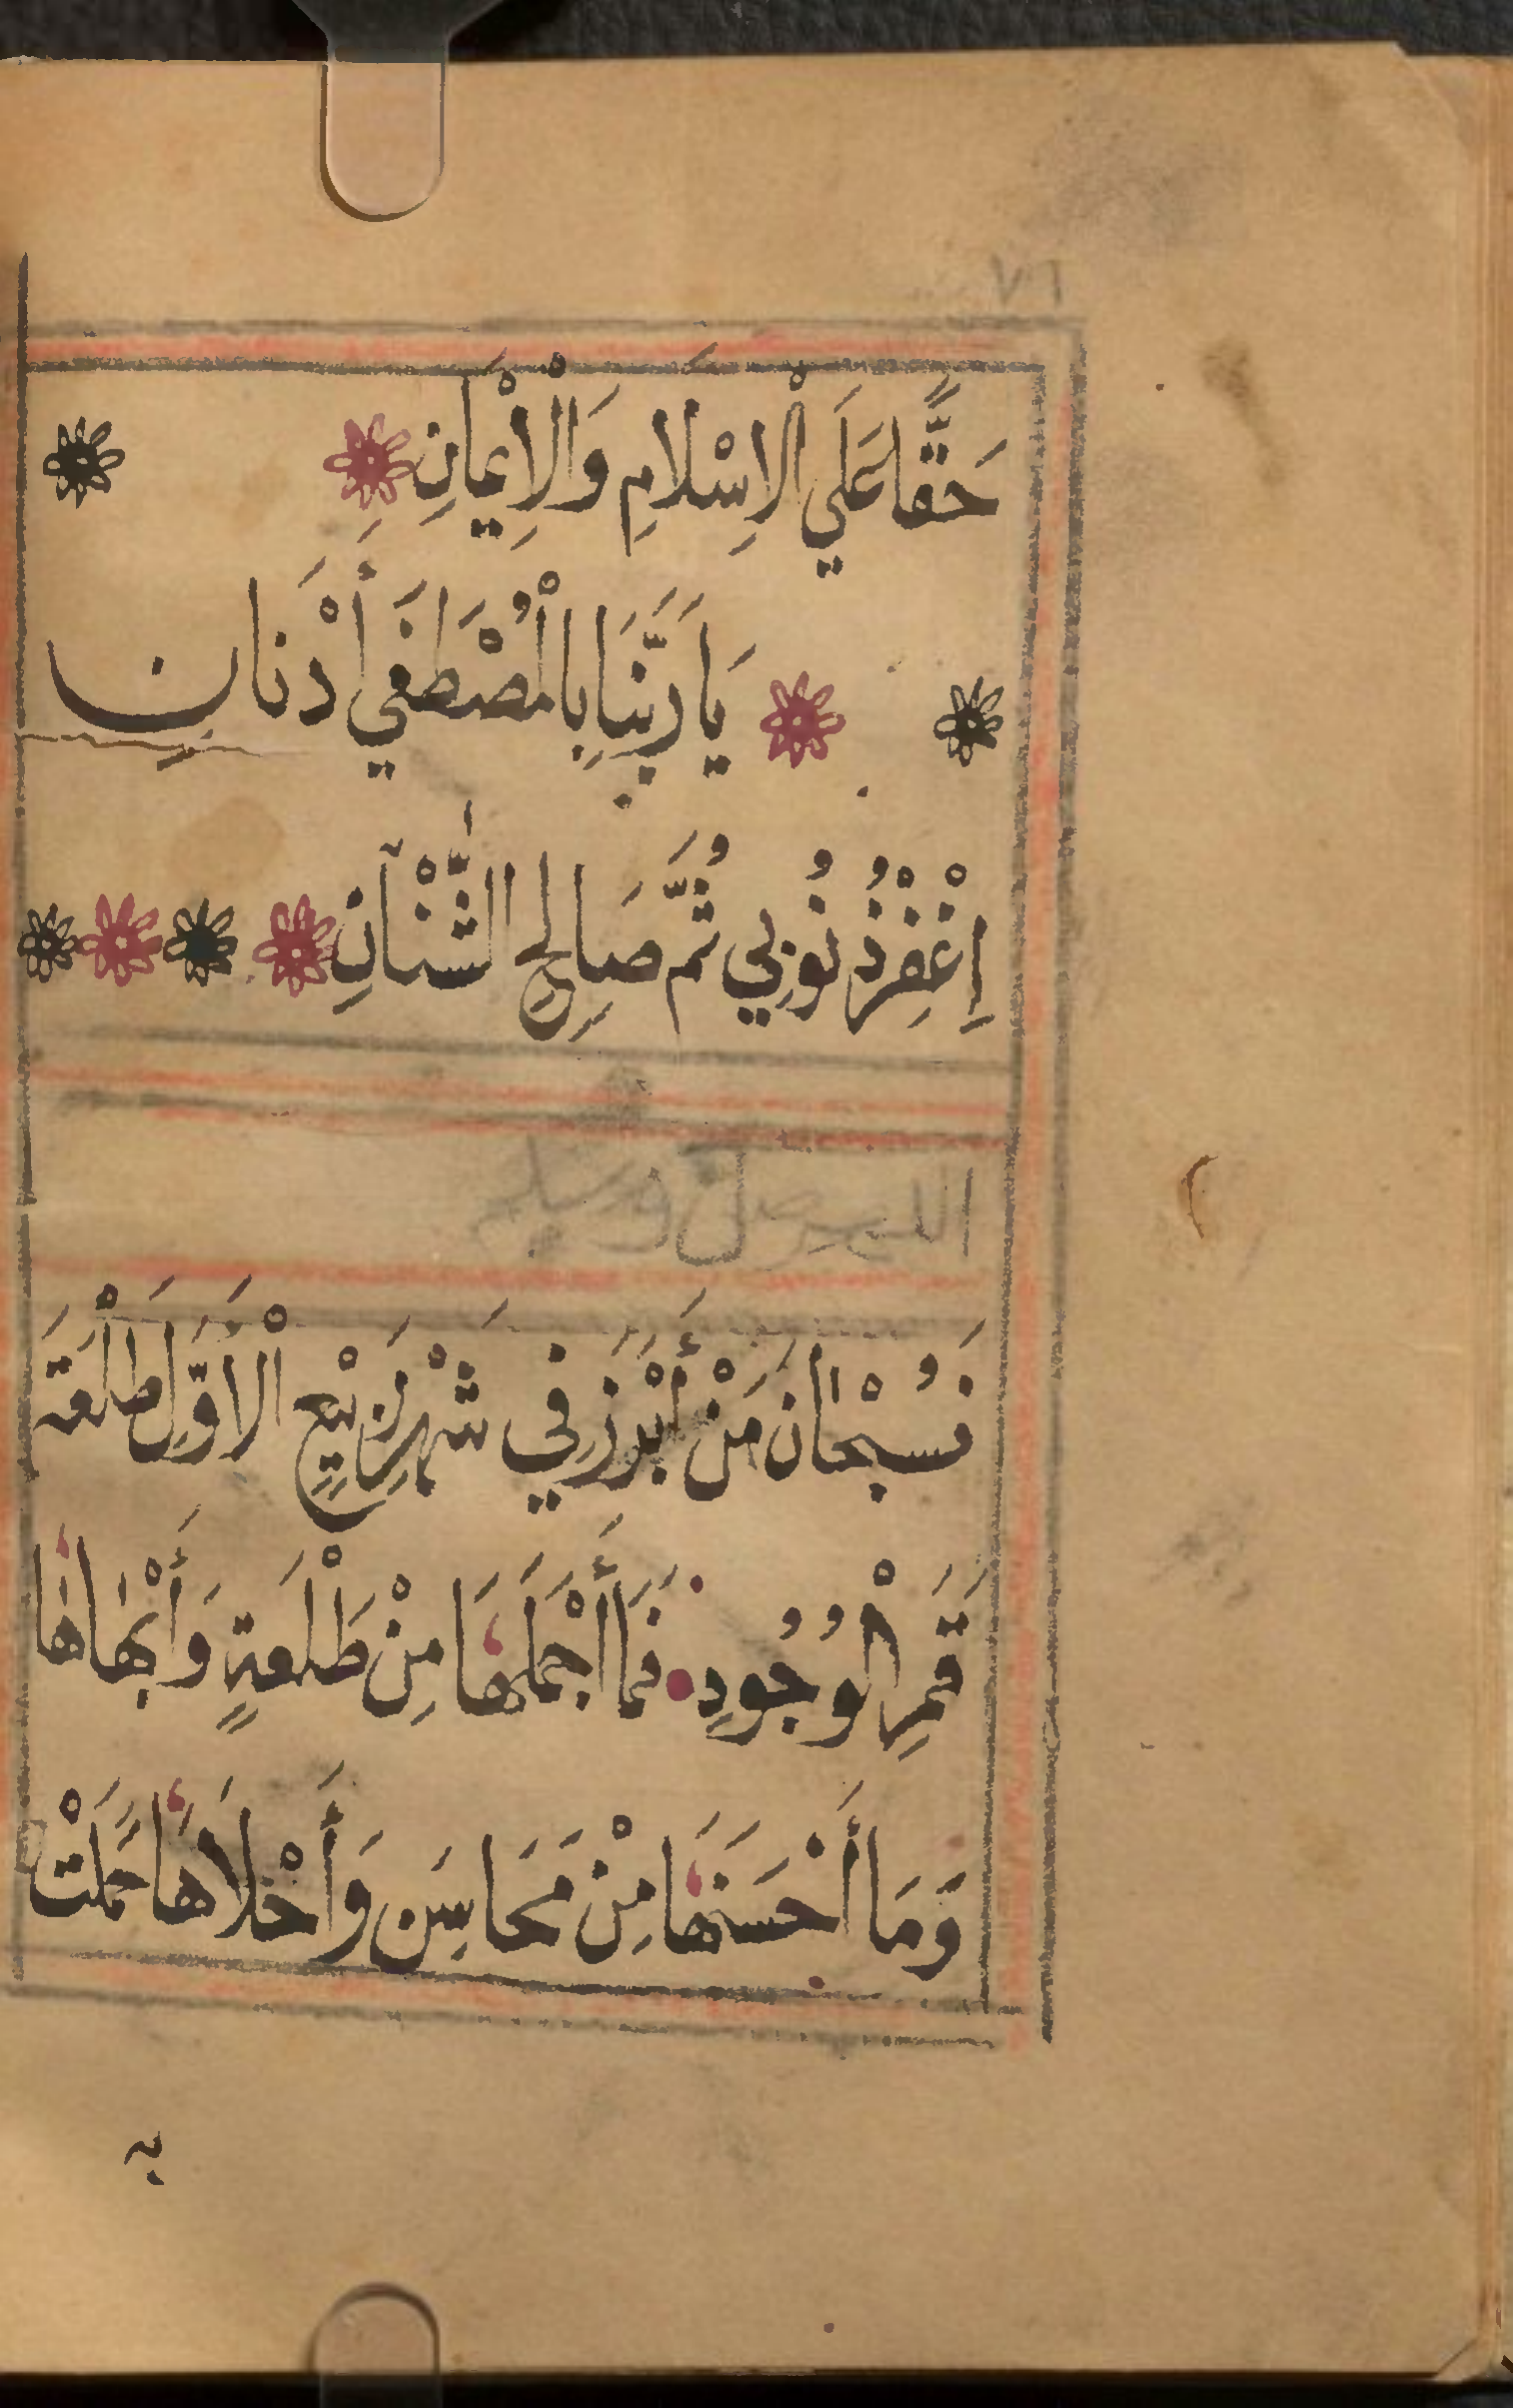 ٧٦
حَقًّا عَلَي الْاِسْلَامِ وَالْاِيْمَانِ
يَا رَبَّنَا بِالْمُصْطَفَي أَدْنَانِ
اِغْفِرْ ذُنُوبِي ثُمَّ صَالِحِ الشَّنْآنِ
اللهم صل وسلم
فَسُبْحَانَ مَنْ أَبْرَزَ فِي شَهْرِ رَبِيْعٍ الْاَوَّلِ طَلْعَةَ
قَمَرِ الْوُجُودِ فَمَا أَجْمَلَهَا مِنْ طَلْعَةٍ وَأَبْهَاهَا
وَمَا أَحْسَنَهَا مِنْ مَحَاسِنَ وَأَحْلَاهَا حَمَلَتْ
به